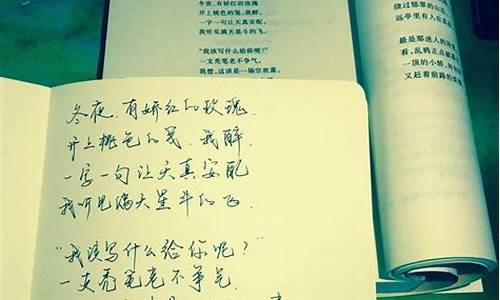 冬夜，有娇红的玫瑰
开上桃色的笺，我醉，
一字一句让天真安配，
我听见满天星斗的飞。
“我该写什么给你呢？”
一支秃笔老不争气。
我想，这该是一场空欢喜，
绕过郁翠的山
远亭里有人在
最是那迷人的
看，乱鸦正点
一顶的小轿，
又赶着前路的
冬夜，有娇红的玫瑰，
开上桃色的笺，我醉，
一字一句让天真安配
我听见满天星斗的飞．
“我该写什么给你呢？”
一支秃笔老不争气．